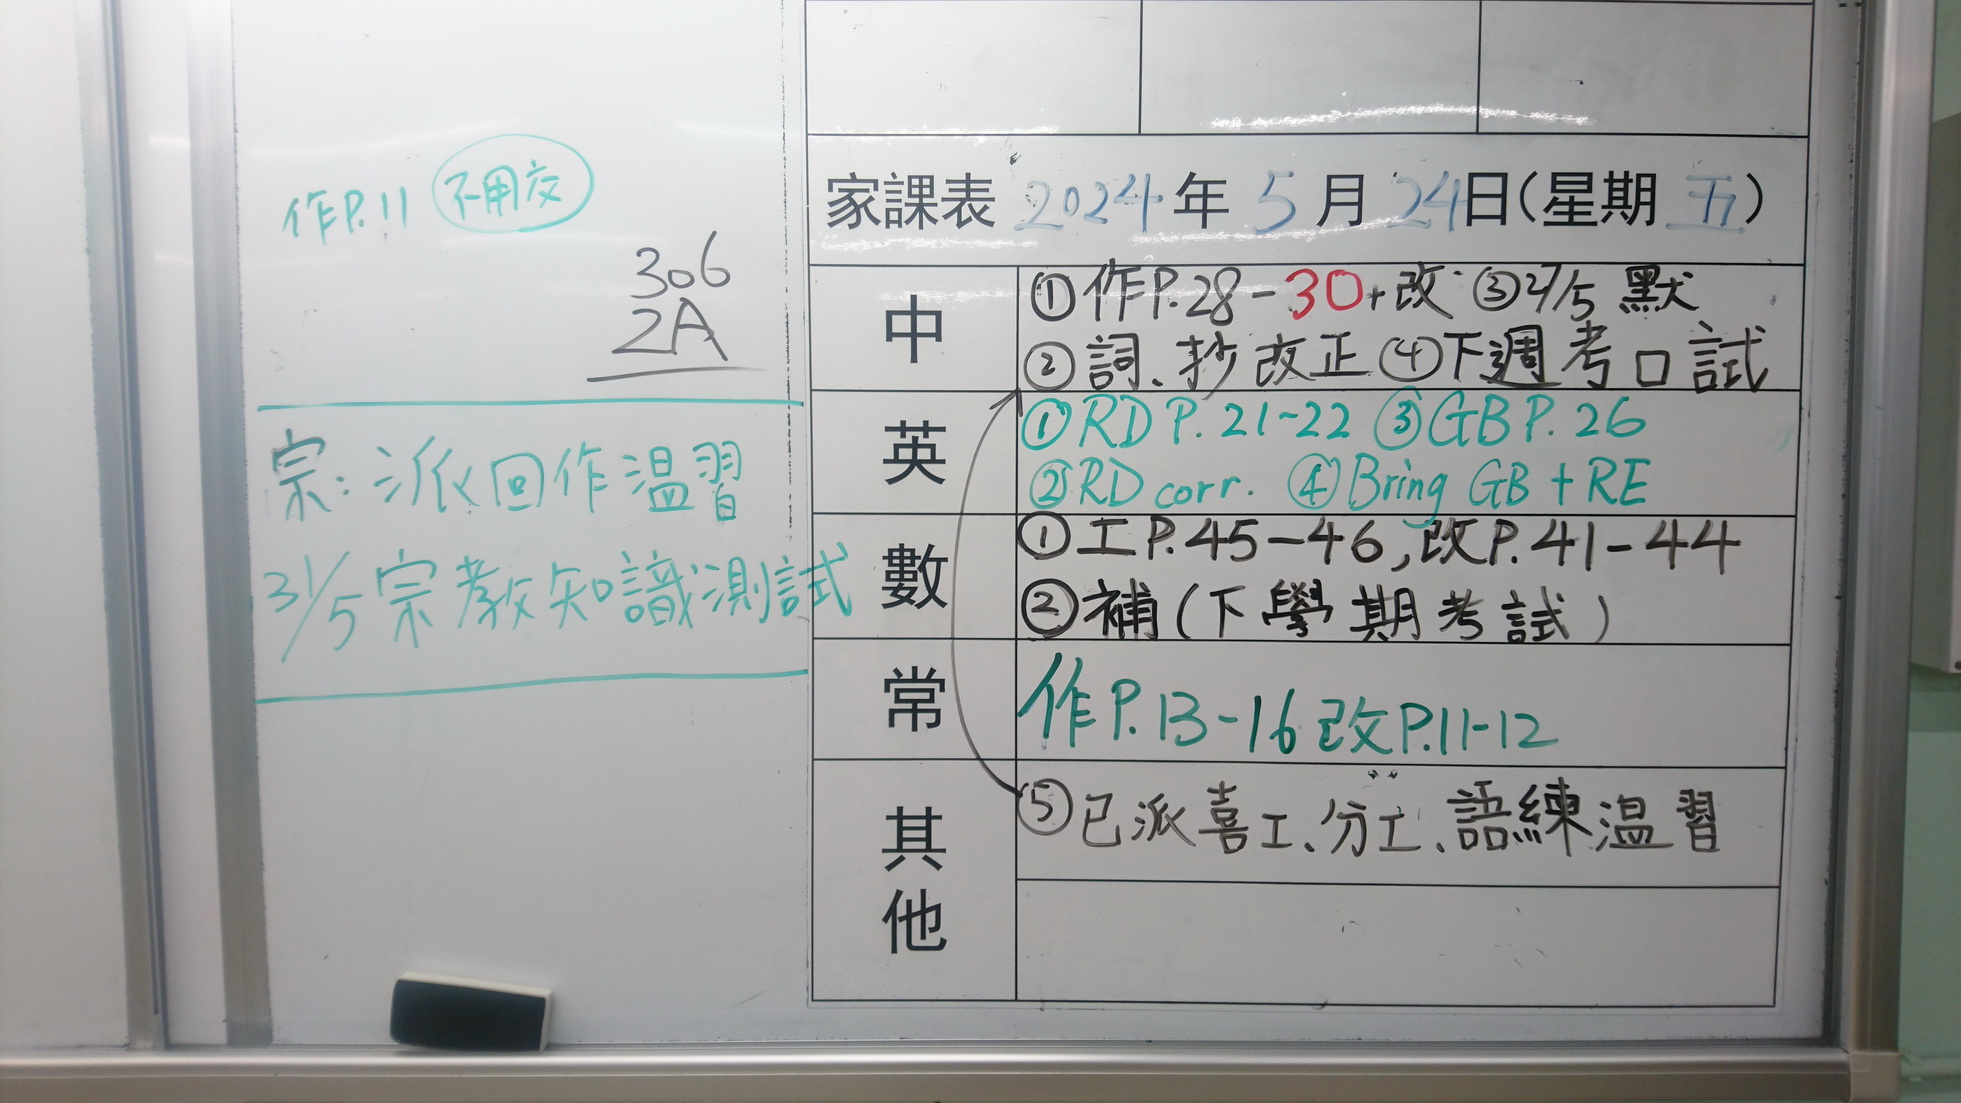 作P.11 不用交
306
2A
宗：派回作温習
31/5宗教知識測試
家課表 2024年5月24日(星期五)
中
①作P.28-30+改 ③27/5 默
②詞、抄改正④下週考口試
英
①RD P.21~22 ③GB P.26
②RD corr. ④Bring GB + RE
數
①工P.45-46,改P.41-44
②補(下學期考試)
常
作P.13-16 改P.11-12
其他
⑤已派喜工、分工、語練温習